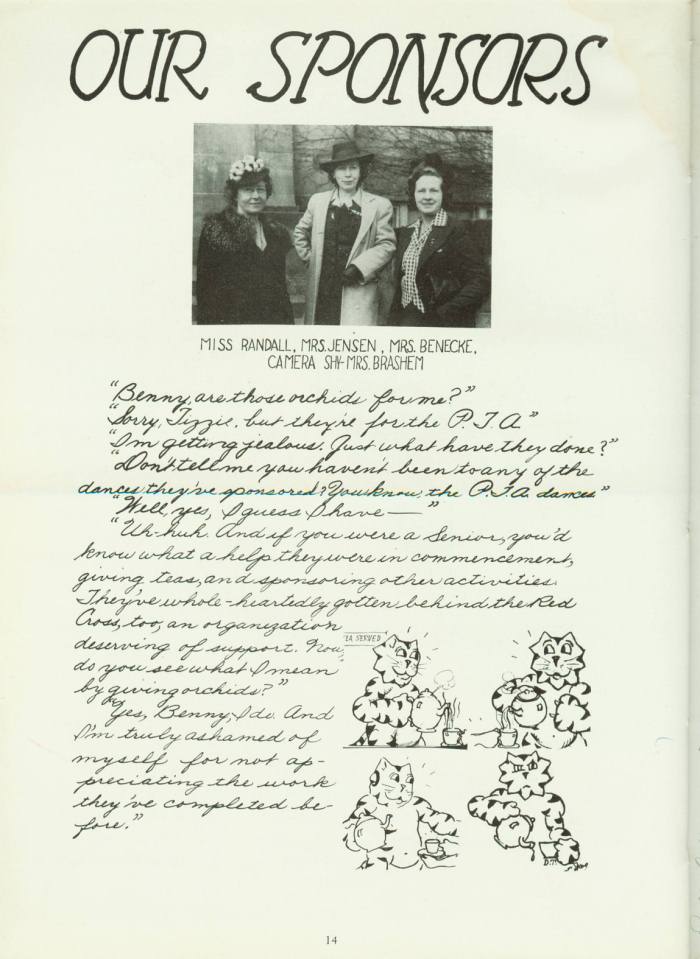 OUR SPONSORS
MISS RANDALL, MRS. JENSEN, MRS. BENECKE,
CAMERA SHY-MRS. BRASHEM
"Benny, are those orchids for me?"
"Sorry, Tizzie, but they're for the P.T.A"
"I'm getting jealous. Just what have they done?"
"Don't tell me you haven't been to any of the
dances they've sponsored? You know, the P.T.A. dances"
"Well, yes, I guess I have—"
"Uh-huh. And if you were a Senior, you'd
know what a help they were in commencement,
giving teas, and sponsoring other activities.
They've whole-heartedly gotten behind the Red
Cross, too, an organization
deserving of support. Now,
do you see what I mean
by giving orchids?"
"Yes, Benny, I do. And
I'm truly ashamed of
myself for not ap-
preciating the work
they've completed be-
fore."
EA SERVED
14